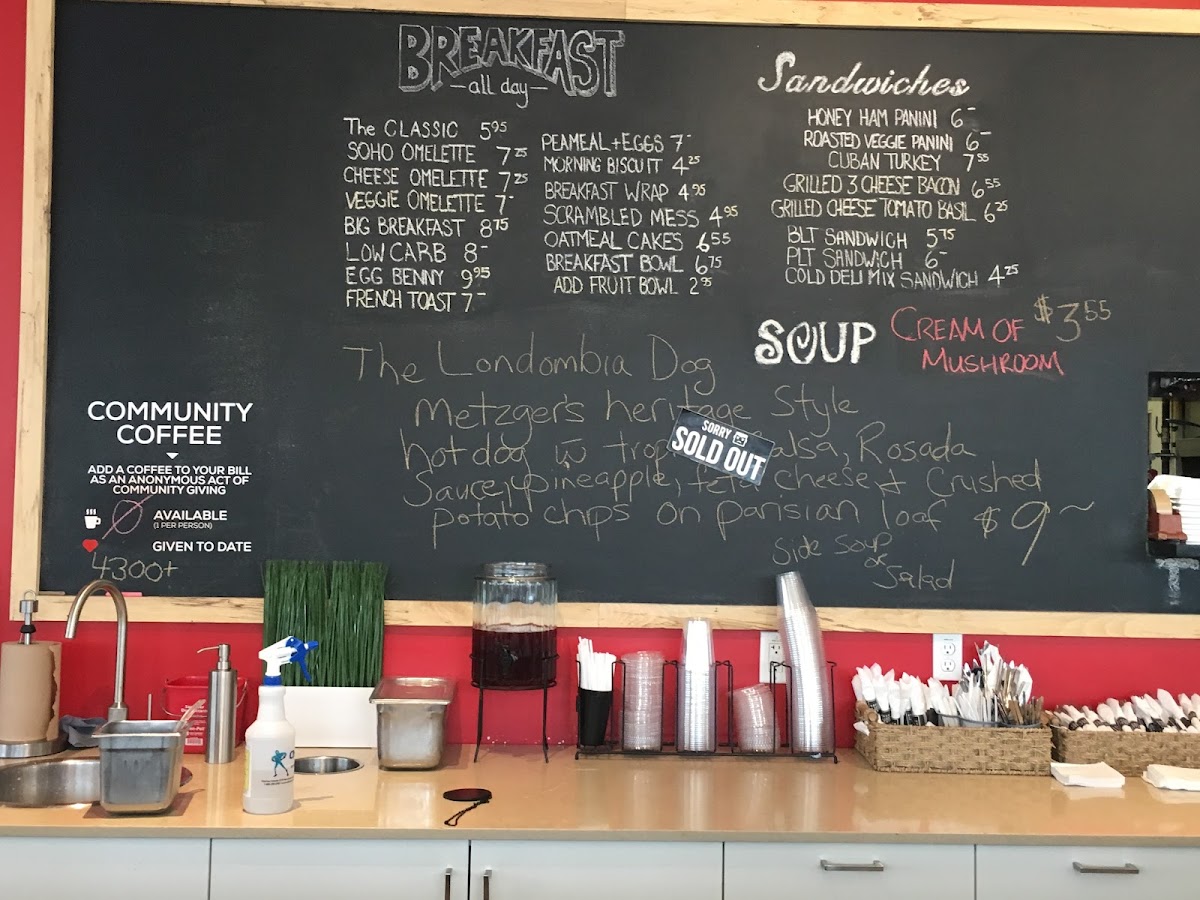 BREAKFAST
-all day-
The CLASSIC 5.95
SOHO OMELETTE 7.25
CHEESE OMELETTE 7.25
VEGGIE OMELETTE 7-
BIG BREAKFAST 8.75
LOW CARB 8-
EGG BENNY 9.95
FRENCH TOAST 7-
PEAMEAL+EGGS 7-
MORNING BISCUIT 4.25
BREAKFAST WRAP 4.95
SCRAMBLED MESS 4.95
OATMEAL CAKES 6.55
BREAKFAST BOWL 6.75
ADD FRUIT BOWL 2.95
Sandwiches
HONEY HAM PANINI 6-
ROASTED VEGGIE PANINI 6-
CUBAN TURKEY 7.55
GRILLED 3 CHEESE BACON 6.55
GRILLED CHEESE TOMATO BASIL 6.25
BLT SANDWICH 5.75
PLT SANDWICH 6-
COLD DELI MIX SANDWICH 4.25
SOUP
CREAM OF $3.55
MUSHROOM
The Londombia Dog
Metzger's heritage Style
hotdog w trop alsa, Rosada
Sauce, pineapple, feta cheese, + Crushed
potato chips on parisian loaf $9~
Side Soup
or
Salad
SORRY
SOLD OUT
COMMUNITY
COFFEE
ADD A COFFEE TO YOUR BILL
AS AN ANONYMOUS ACT OF
COMMUNITY GIVING
0 AVAILABLE
(1 PER PERSON)
GIVEN TO DATE
4300+